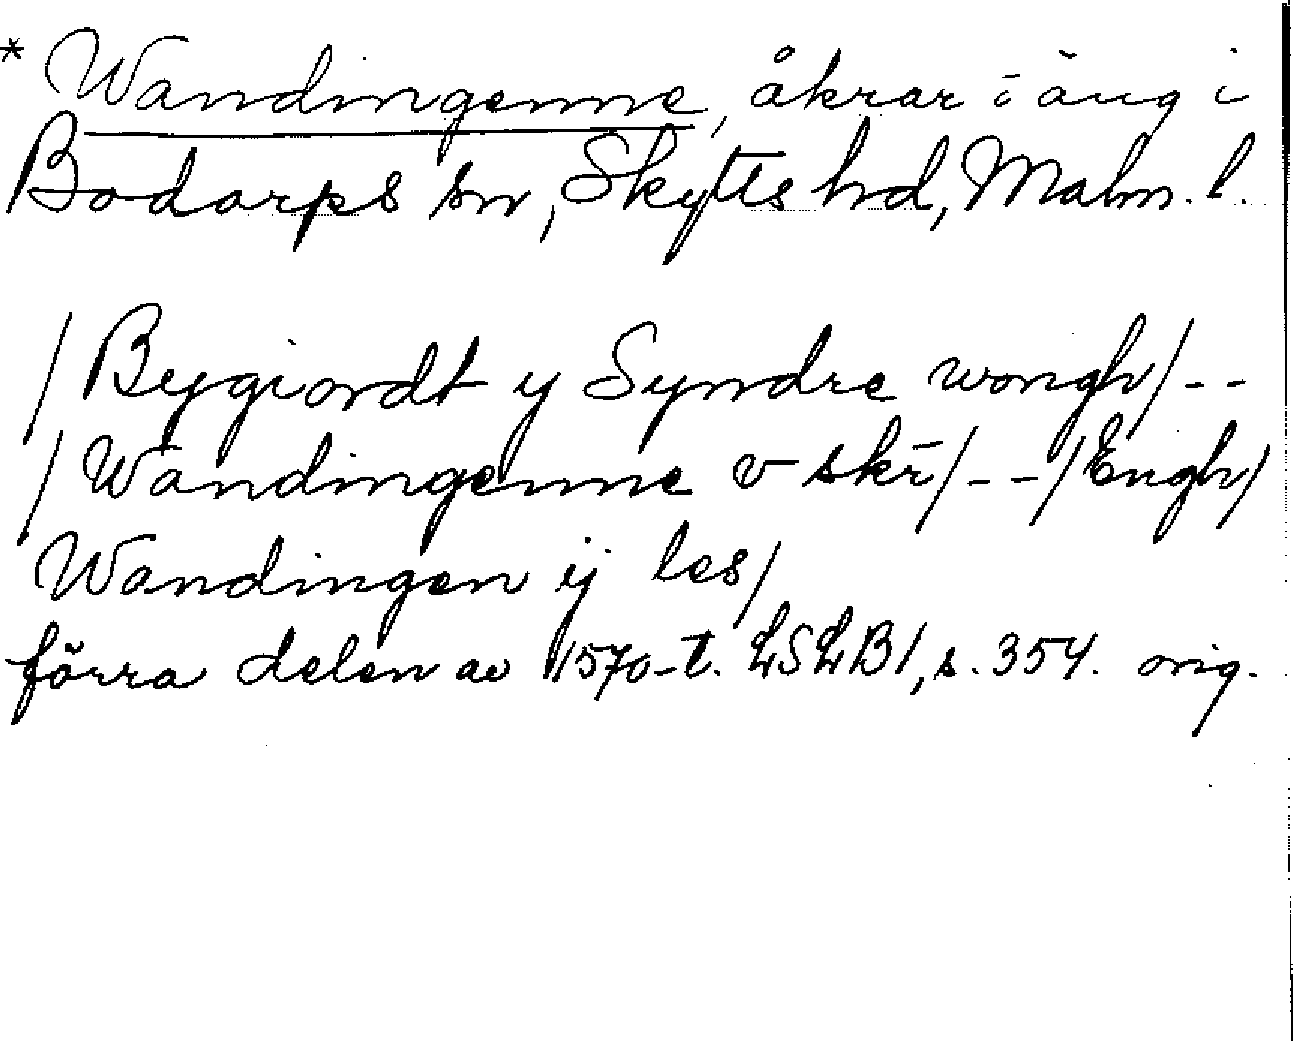 * Wandingenne, åkrar i äng i
Bodarps sn, Skytts hd, Malm. l.
/Bygiordt y Syndre wongh/--
/Wandingenne v skr̄/--/Engh/
Wandingen ij les/
förra delen av 1570-t. LSLB1, s. 354. orig.